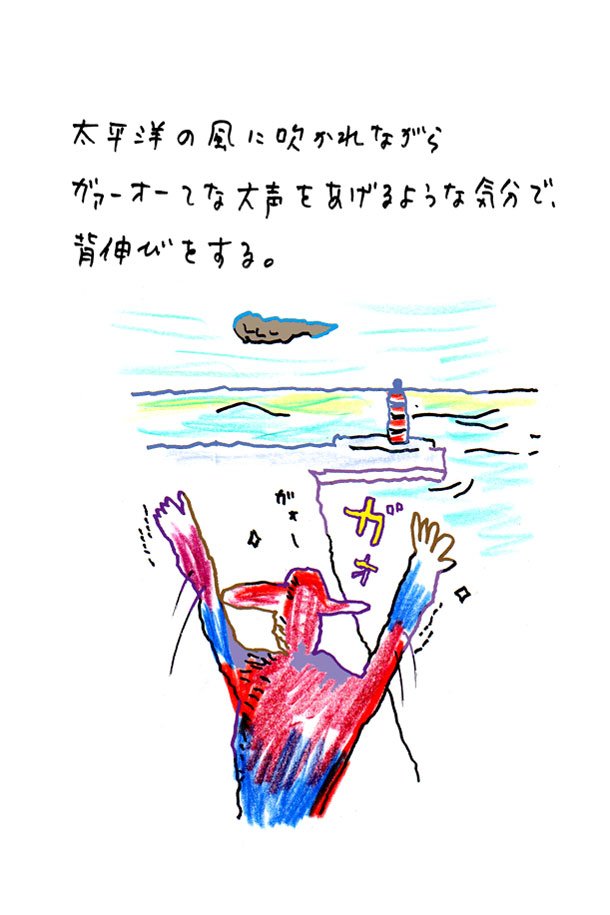 太平洋の風に吹かれながら
ガァーオーてな大声をあげるような気分で、
背伸びをする。
ガォー
ガォ